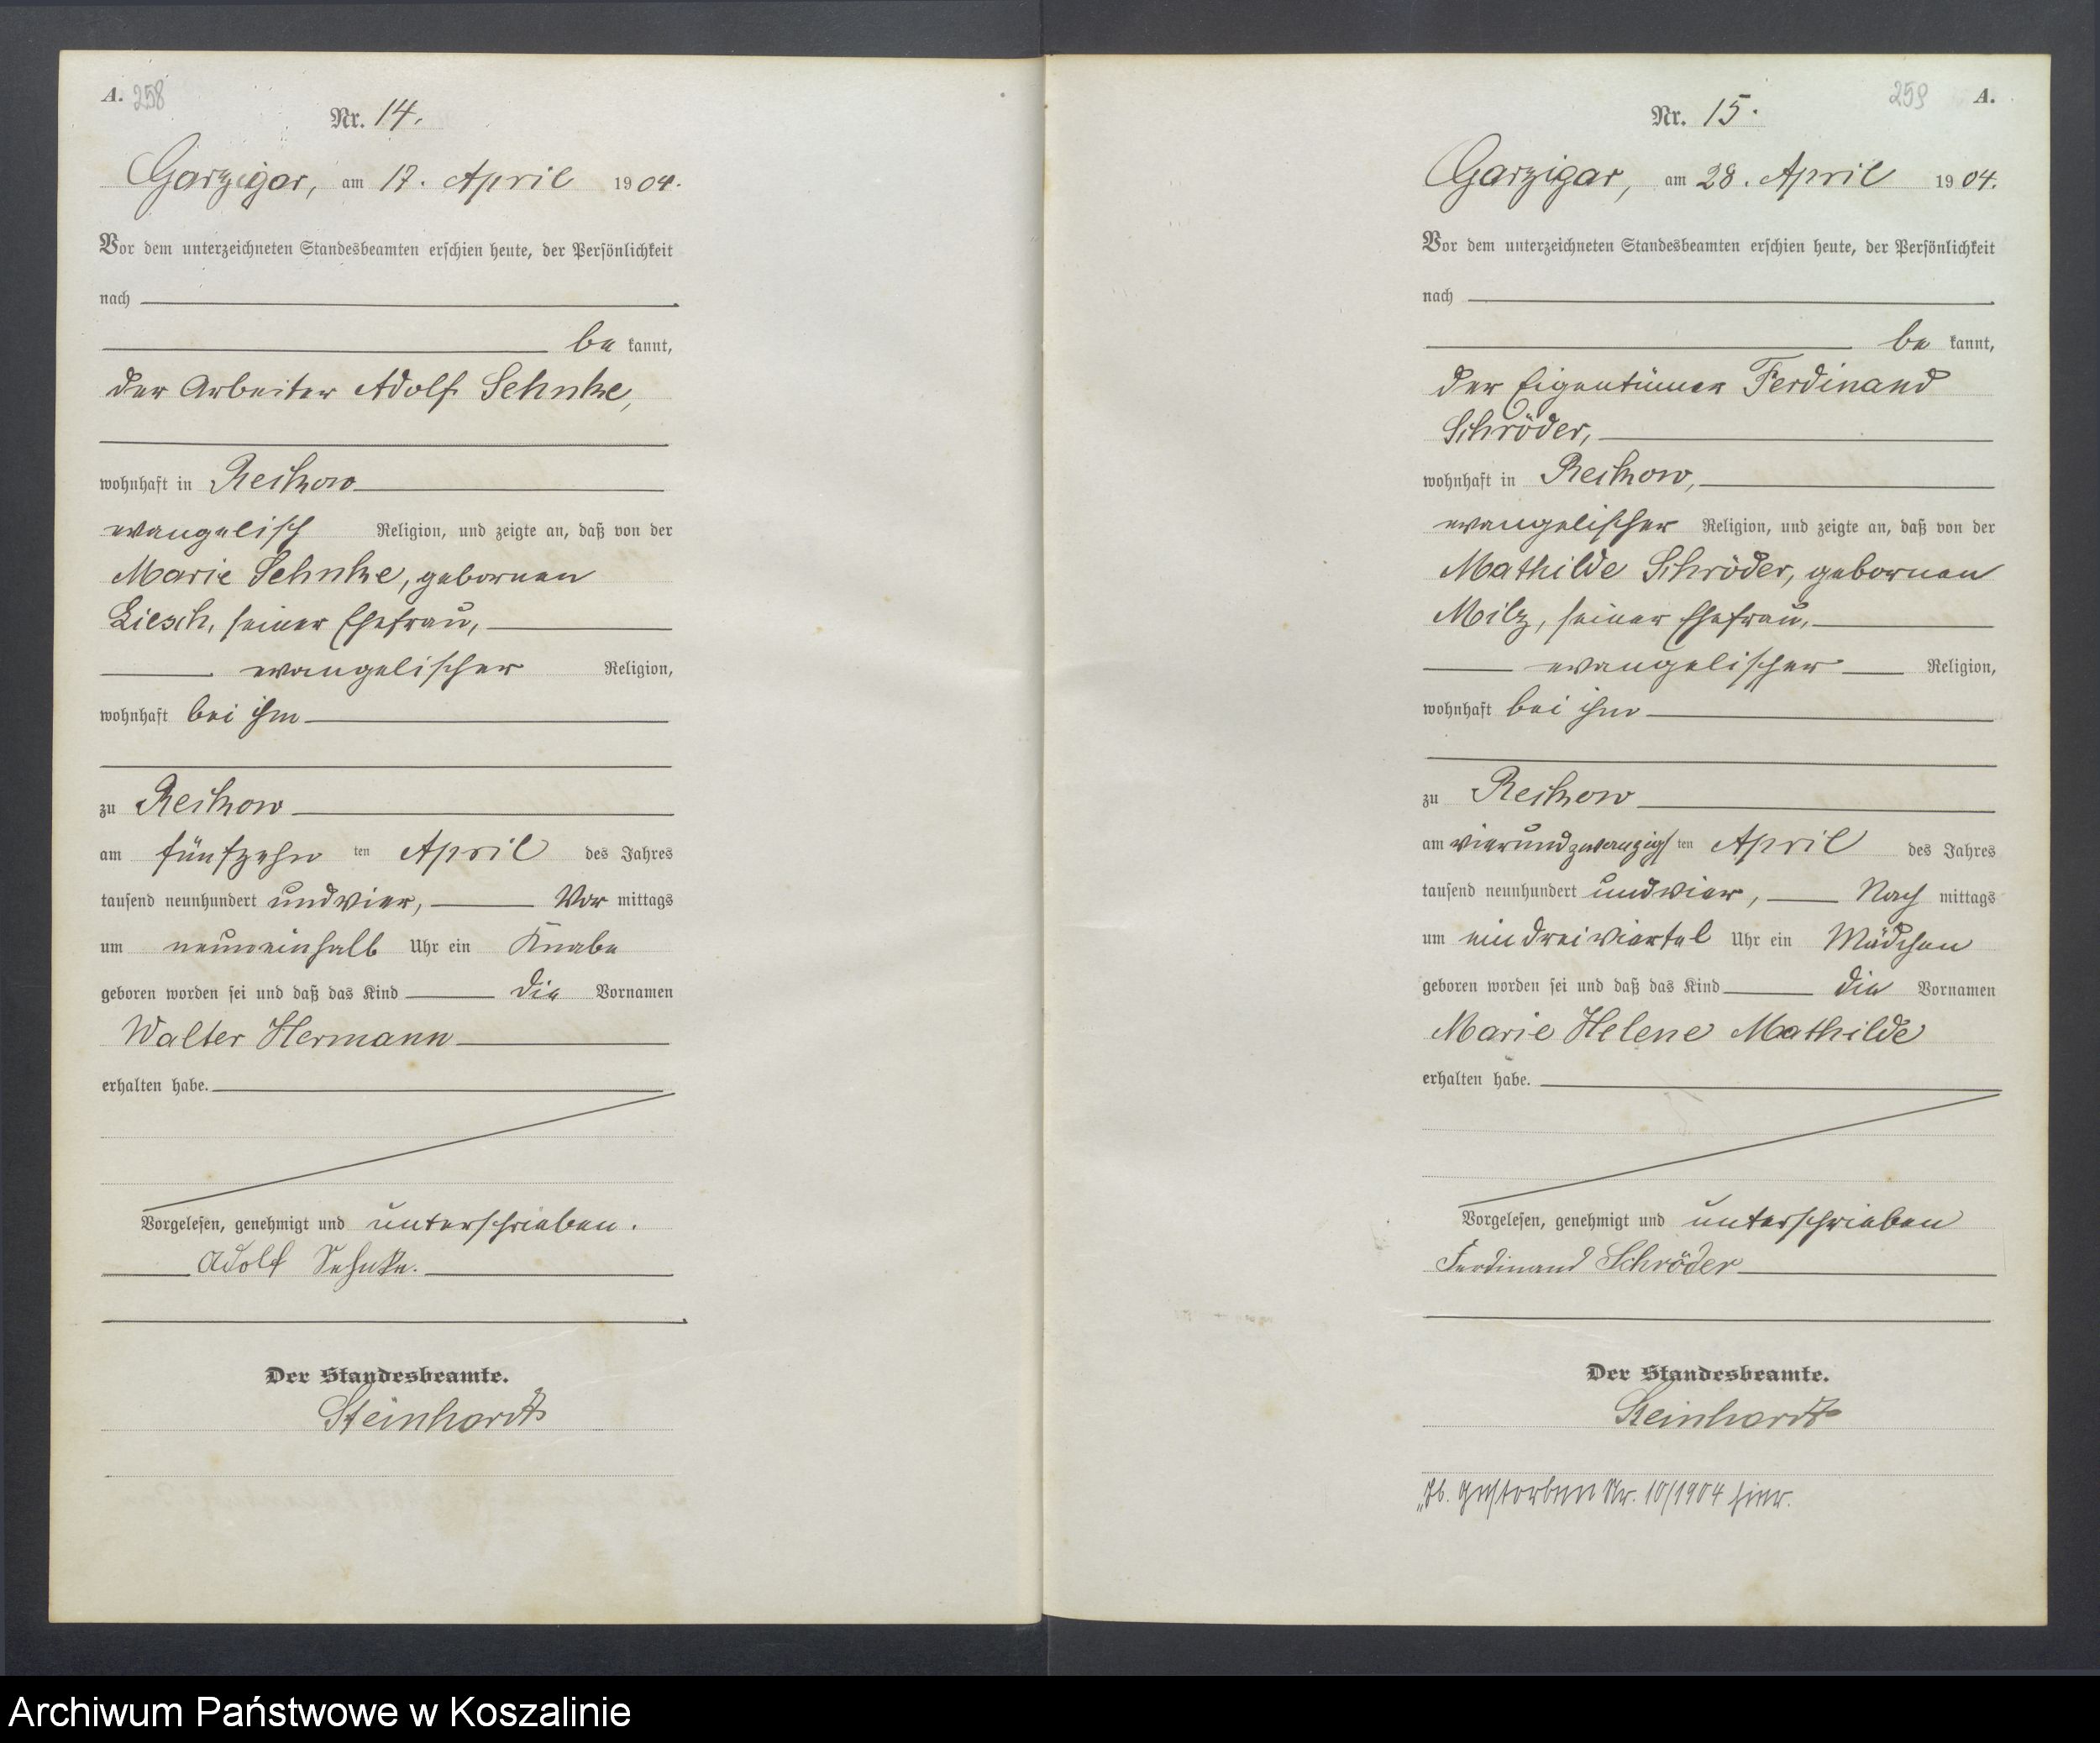 A. 258
Nr. 14.
Garzigar, am 17. April 1904.
Vor dem unterzeichneten Standesbeamten erschien heute, der Persönlichkeit
nach
be kannt,
der Arbeiter Adolf Sehnke,
wohnhaft in Reckow
evangelisch Religion, und zeigte an, daß von der
Marie Sehnke, geborenen
Liesch, seiner Ehefrau,
evangelischer Religion,
wohnhaft bei ihm
zu Reckow
am fünfzehn ten April des Jahres
tausend neunhundert und vier, Vor mittags
um neuneinhalb Uhr ein Knabe
geboren worden sei und daß das Kind die Vornamen
Walter Hermann
erhalten habe.
Vorgelesen, genehmigt und unterschrieben.
Adolf Sehnke.
Der Standesbeamte.
Steinhardt
259 A.
Nr. 15.
Garzigar, am 28. April 1904.
Vor dem unterzeichneten Standesbeamten erschien heute, der Persönlichkeit
nach
be kannt,
der Eigentümer Ferdinand
Schröder,
wohnhaft in Reckow,
evangelischer Religion, und zeigte an, daß von der
Mathilde Schröder, geborenen
Milz, seiner Ehefrau,
evangelischer Religion,
wohnhaft bei ihm
zu Reckow
am vierundzwanzigs ten April des Jahres
tausend neunhundert und vier, Nach mittags
um eindreiviertel Uhr ein Mädchen
geboren worden sei und daß das Kind die Vornamen
Marie Helene Mathilde
erhalten habe.
Vorgelesen, genehmigt und unterschrieben
Ferdinand Schröder
Der Standesbeamte.
Steinhardt
gestorben Nr. 10/1904 hier.
Archiwum Państwowe w Koszalinie